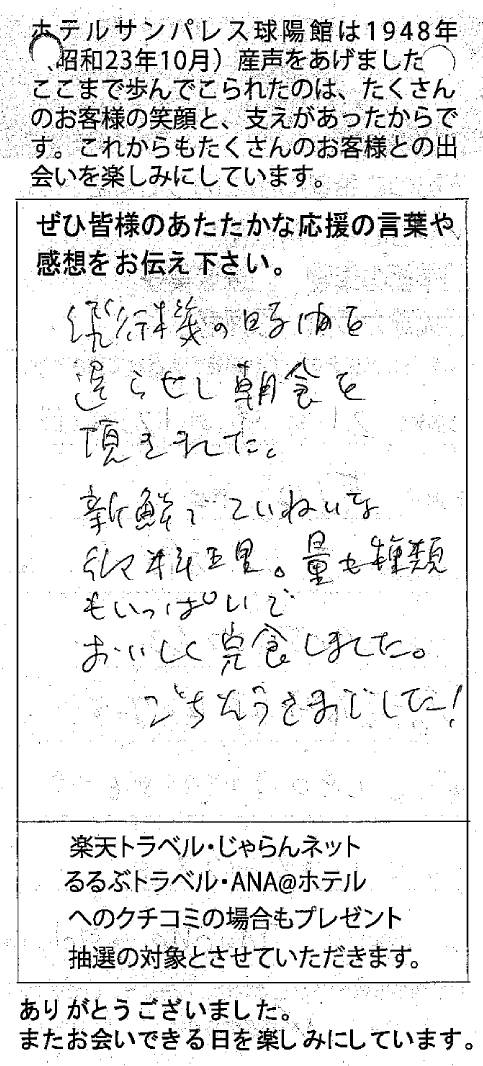 ホテルサンパレス球陽館は1948年
(昭和23年10月)産声をあげました
ここまで歩んでこられたのは、たくさん
のお客様の笑顔と、支えがあったからで
す。これからもたくさんのお客様との出
会いを楽しみにしています。
ぜひ皆様のあたたかな応援の言葉や
感想をお伝え下さい。
飛行機の時間を
遅らせし朝食を
頂きました。
新鮮でていねいな
お料理。量も種類
もいっぱいで
おいしく完食しました。
ごちそうさまでした!
楽天トラベル・じゃらんネット
るるぶトラベル・ANA@ホテル
へのクチコミの場合もプレゼント
抽選の対象とさせていただきます。
ありがとうございました。
またお会いできる日を楽しみにしています。